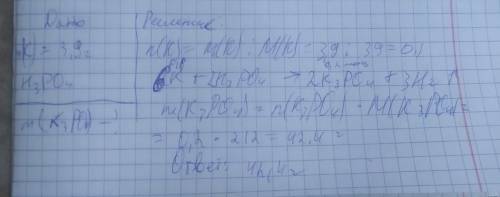 Дано
Решение
m(K) = 3,9г
H₃PO₄
m(K₃PO₄) - ?
n(K) = m(K) : M(K) = 39 : 39 = 0,1
6K + 2H₃PO₄ → 2K₃PO₄ + 3H₂↑
m(K₃PO₄) = n(K₃PO₄) · M(K₃PO₄) =
= 0,2 · 212 = 42,4 г
Ответ: 42,4г